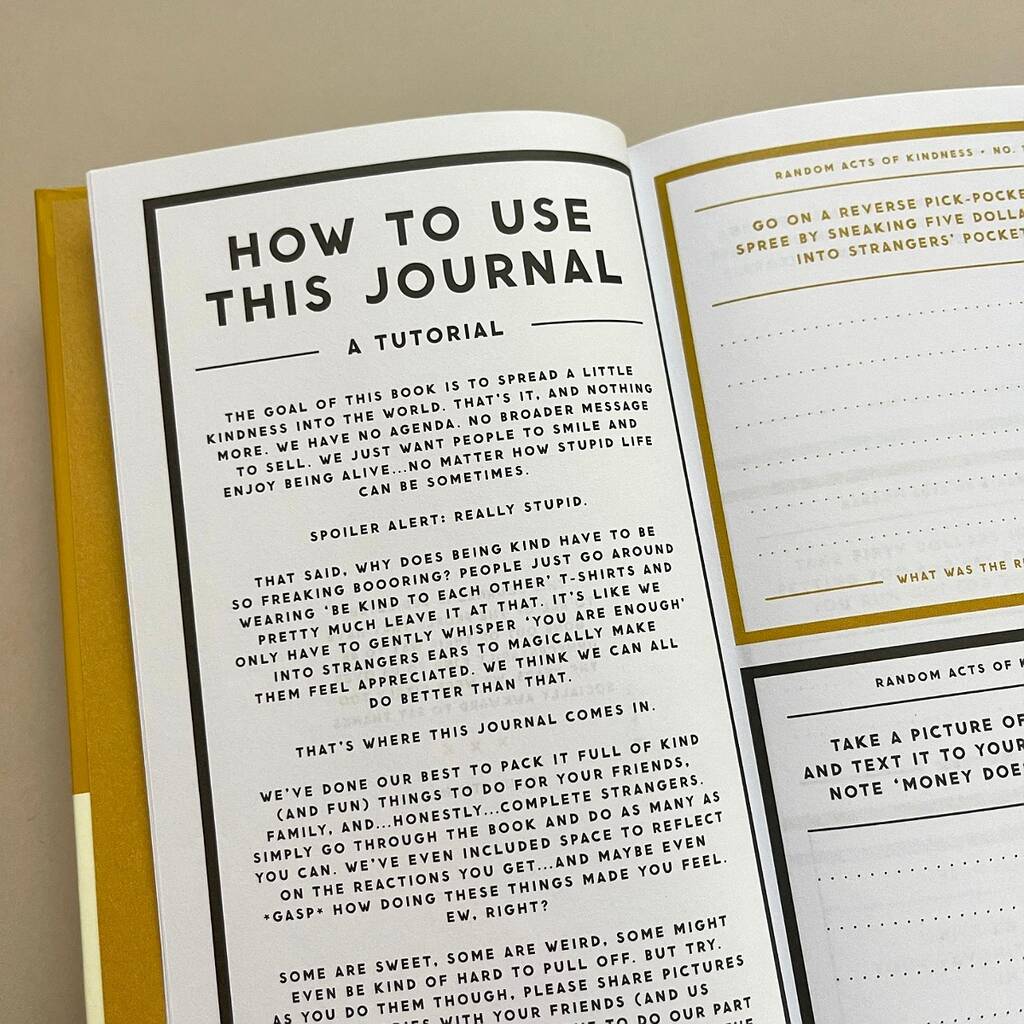 HOW TO USE
THIS JOURNAL
A TUTORIAL
THE GOAL OF THIS BOOK IS TO SPREAD A LITTLE
KINDNESS INTO THE WORLD. THAT'S IT, AND NOTHING
MORE. WE HAVE NO AGENDA. NO BROADER MESSAGE
TO SELL. WE JUST WANT PEOPLE TO SMILE AND
ENJOY BEING ALIVE...NO MATTER HOW STUPID LIFE
CAN BE SOMETIMES.
SPOILER ALERT: REALLY STUPID.
THAT SAID, WHY DOES BEING KIND HAVE TO BE
SO FREAKING BOOORING? PEOPLE JUST GO AROUND
WEARING 'BE KIND TO EACH OTHER' T-SHIRTS AND
PRETTY MUCH LEAVE IT AT THAT. IT'S LIKE WE
ONLY HAVE TO GENTLY WHISPER 'YOU ARE ENOUGH'
INTO STRANGERS EARS TO MAGICALLY MAKE
THEM FEEL APPRECIATED. WE THINK WE CAN ALL
DO BETTER THAN THAT.
THAT'S WHERE THIS JOURNAL COMES IN.
WE'VE DONE OUR BEST TO PACK IT FULL OF KIND
(AND FUN) THINGS TO DO FOR YOUR FRIENDS,
FAMILY, AND...HONESTLY...COMPLETE STRANGERS.
SIMPLY GO THROUGH THE BOOK AND DO AS MANY AS
YOU CAN. WE'VE EVEN INCLUDED SPACE TO REFLECT
ON THE REACTIONS YOU GET...AND MAYBE EVEN
*GASP* HOW DOING THESE THINGS MADE YOU FEEL.
EW, RIGHT?
SOME ARE SWEET, SOME ARE WEIRD, SOME MIGHT
EVEN BE KIND OF HARD TO PULL OFF. BUT TRY.
AS YOU DO THEM THOUGH, PLEASE SHARE PICTURES
WITH YOUR FRIENDS (AND US
TO DO OUR PART
RANDOM ACTS OF KINDNESS • NO.
GO ON A REVERSE PICK-POCKE
SPREE BY SNEAKING FIVE DOLLA
INTO STRANGERS' POCKET
WHAT WAS THE R
RANDOM ACTS OF K
TAKE A PICTURE OF
AND TEXT IT TO YOUR
NOTE 'MONEY DOE